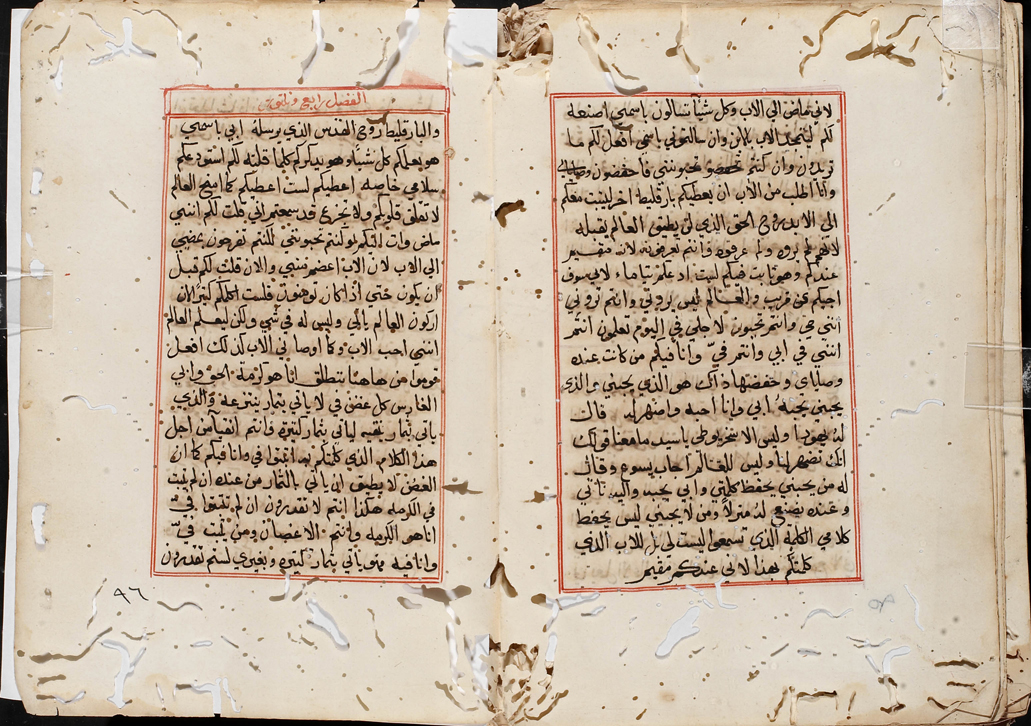 لاني ماض الى الاب وكل شيآ تسالون باسمي اصنعه
لكم ليتمجد الاب بالابن وان سالتموني باسمي افعل لكم ما
تريدون وان كنتم تحبونني فاحفضون وصاياي
وانا اطلب من الاب ان يعطيكم بارقليط اخر ليثبت معكم
الى الابد روح الحق الذي لن يطيق العالم يقبله
لانهم لم يروه ولم عرفوه وانتم تعرفونه لانه مقيم
عندكم وهو ثابت فيكم لست ادعكم يتاما لاني سوف
اجيكم عن قريب والعالم ليس يروني وانتم تروني
انني حي وانتم تحيون لاجلي في اليوم تعلمون انتم
انني في ابي وانتم فيّ وانا فيكم من كانت عنده
وصاياي وحفضها ذاك هو الذي يحبني والذي
يحبني يحبه ابي وانا احبه واضهر له قال
له يهودا وليس الاسخريوطي ياسيد ما معنا قولك
انك تضهر لنا وليس للعالم اجاب يسوع وقال
له من يحبني يحفظ كلمتي وابي يحبه واليه ناتي
وعنده نصنع له منزلاً ومن لا يحبني ليس يحفظ
كلامي الكلمة الذي تسمعوا ليست لي بل للاب الذي
كلمتكم بهذا لاني عندكم مقيم
الفصل رابع وثلثون
والبارقليط روح القدس الذي يرسله ابي باسمي
هو يعلمكم كل شيآ وهو يذكركم كلما قلته لكم استودعكم
سلامي خاصه اعطيكم لست اعطيكم كما امنح العالم
لا تقلق قلوبكم ولا تجزع قد سمعتم اني قلت لكم انني
ماض وات اليكم لو كنتم تحبونني لكنتم تفرحون بمضيي
الى الاب لان الاب اعضم مني والان قلت لكم قبل
ان يكون حتى اذا كان تومنون فلست اكلمكم كثيراً لان
اركون العالم ياتي وليس له في شي ولكن ليعلم العالم
انني احب الاب وكما اوصاني الاب كذلك افعل
قوموا من هاهنا ننطلق انا هو كرمة الحق وابي
الغارس كل غصن في لا ياتي بثمار ينتزعه والذي
ياتي بثمار ينقيه لياتي بثمار كثيره وانتم انقيا من اجل
هذا الكلام الذي كلمتكم به اثبتوا في وانا فيكم كما ان
الغصن لا يطيق ان ياتي بالثمار من عنده ان لم يثبت
في الكرمه هكذا انتم لا تقدرون ان لم تثبتوا فيّ
انا هو الكرمه وانتم الاغصان ومن يثبت فيّ
وانا فيه فهو ياتي بثمار كثيره وبغيري لستم تقدرون
٩٦